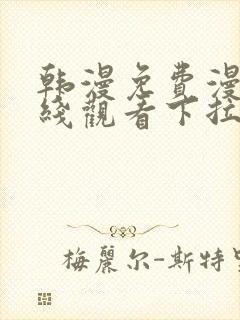 韩漫免費漫
綫觀看下拉
梅麗尔-斯特